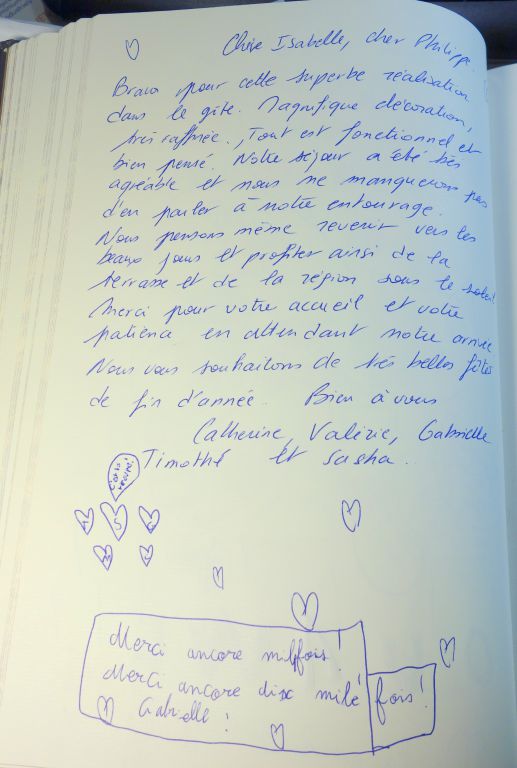 Chère Isabelle, cher Philippe.
Bravo pour cette superbe réalisation
dans le gîte. Magnifique décoration,
très raffinée. Tout est fonctionnel et
bien pensé. Notre séjour a été très
agréable et nous ne manquerons pas
d'en parler à notre entourage.
Nous pensons même revenir vers les
beaux jours et profiter ainsi de la
terrasse et de la région sous le soleil
Merci pour votre accueil et votre
patience en attendant notre arrivée
Nous vous souhaitons de très belles fêtes
de fin d'année. Bien à vous
Catherine, Valérie, Gabrielle
Timothé et Sasha.
S
Merci ancore milfois!
Merci ancore dix milé fois!
Gabrielle!